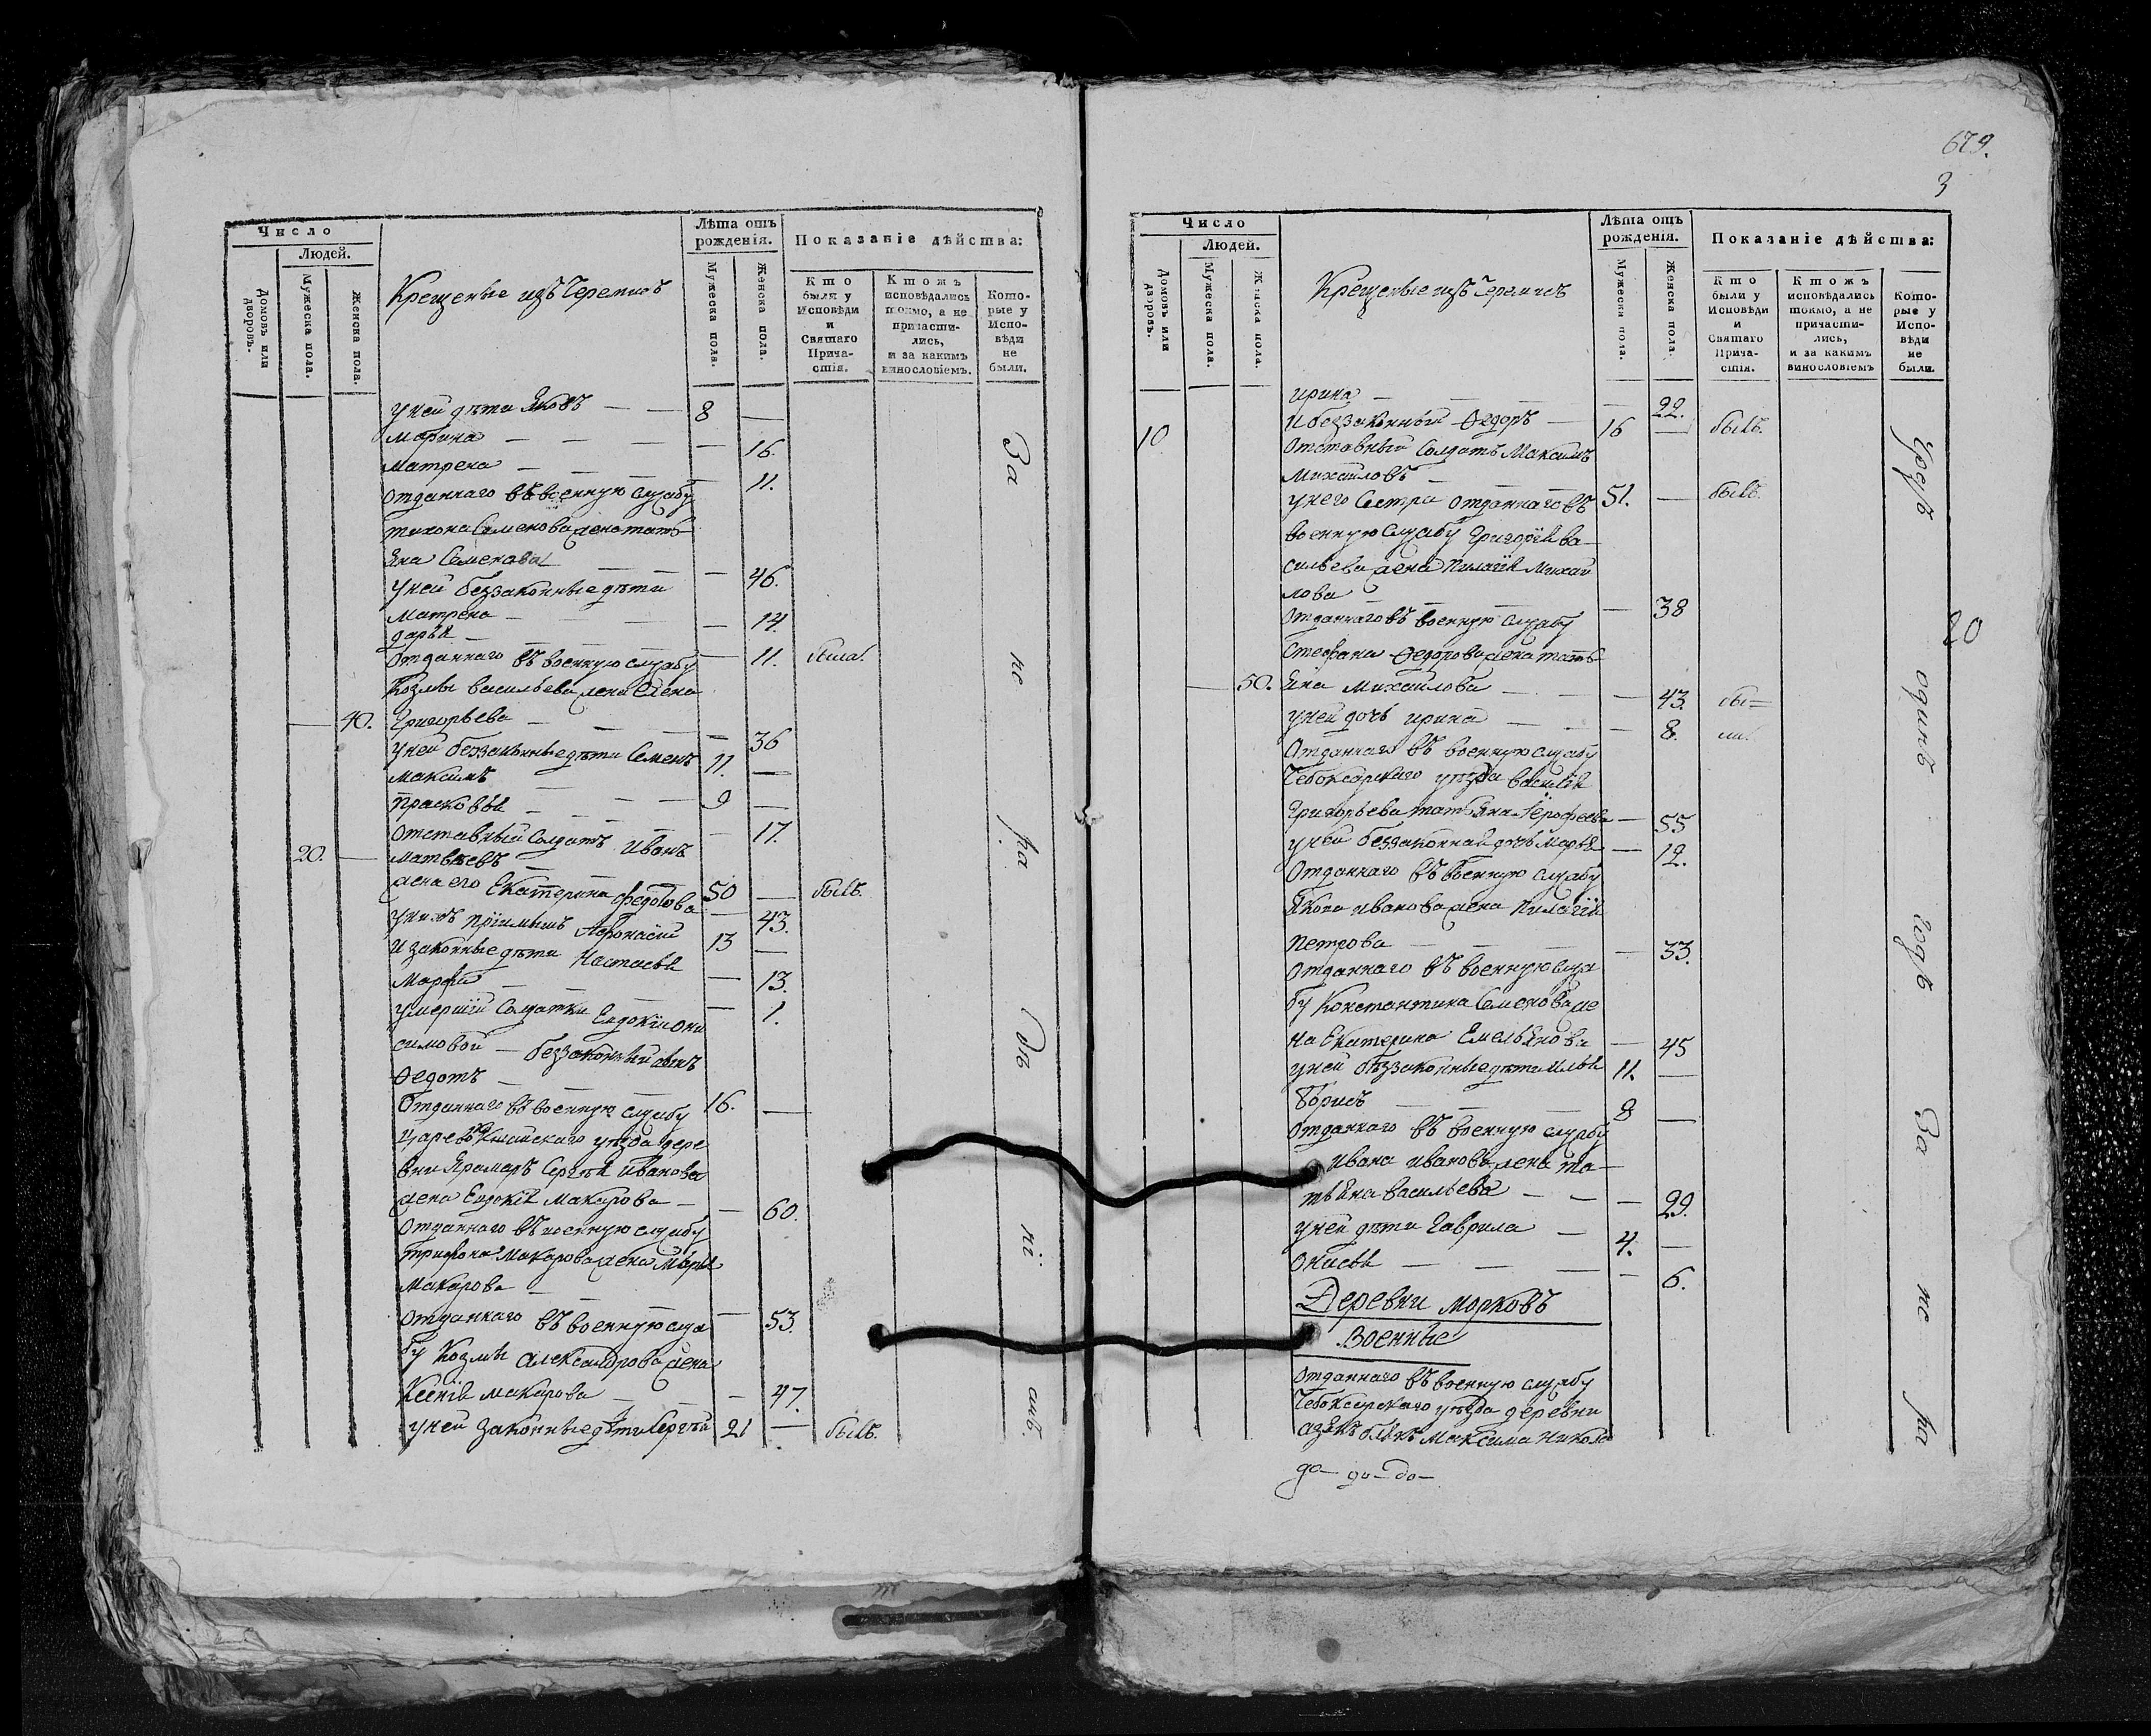 Число
Людей.
Домовъ или дворовъ.
Мужеска пола.
Женска пола.
Крещеные изъ Черемисъ
Лѣта отъ рожденія.
Мужеска пола.
Женска пола.
Показаніе дѣйства:
Кто были у Исповѣди и Святаго Прича- стія.
Ктожъ исповѣдались токмо, а не причасти- лись, и за какимъ винословіемъ.
Кото- рые у Испо- вѣди не были.
у ней дѣти Яковъ — — 8 —
Марина — — — — 16.
Матрена — — — — 11.
отданнаго въ военную службу
тихона Семенова жена тать
яна Семенова — — — 46.
у ней беззаконные дѣти
Матрена — — — 14.
дарья — — — 11. была.
Отданнаго въ военную службу
Козмы васильева жена Елена
— 40. Григорьева — — — 36
у ней беззаконные дѣти Семенъ 11. —
Максимъ — — — 9 —
Прасковья — — — 17.
отставный Солдатъ Иванъ
20. — Матвѣевъ — — 50 — былъ.
жена его Екатерина федотова — 43.
у нихъ пріимышъ Афонасій 13 —
и законные дѣти Настасья — 13.
Марфа — — — 1.
умершій Солдатки Евдокіи они
симовой — беззаконный сынъ
Ѳедотъ — — 16. —
Отданнаго въ военную службу
Царевококшайскаго уѣзда дере
вни Ярамаръ Сергѣя Иванова
жена Евдокія Макарова — — 60.
Отданнаго въ военную службу
трифона Макарова жена Марья
Макарова — — — 53.
Отданнаго въ военную слу
бу Козмы Александрова жена
Ксенія Макарова — — 47.
у ней законные дѣти Сергѣй 21 — былъ.
За не ра дѣ ні емъ.
679.
3
Число
Людей.
Домовъ или дворовъ.
Мужеска пола.
Женска пола.
Крещеные изъ Черемисъ
Лѣта отъ рожденія.
Мужеска пола.
Женска пола.
Показаніе дѣйства:
Кто были у Исповѣди и Святаго Прича- стія.
Ктожъ исповѣдались токмо, а не причасти- лись, и за какимъ винословіемъ
Кото- рые у Испо- вѣди не были.
ирина — — — 22.
и беззаконный Ѳедоръ — 16 — былъ.
10 Отставный Солдатъ Максимъ
Михайловъ — — 51. — былъ.
у него Сестра отданнаго въ
военную службу Григорія ва
сильева жена Пилагія Михай
лова — — — 38
отданнаго въ военную службу
Стефана Ѳедорова жена тать
— 50. яна Михайлова — — 43. бы=
у ней дочь ирина — — 8. ли.
Отданнаго въ военную службу
Чебоксарскаго уѣзда василія
Григорьева татьяна Іерофеева — 55
у ней беззаконная дочь Марья — 12.
Отданнаго въ военную службу
Якова иванова жена Пилагія
Петрова — — — 33.
Отданнаго въ военную служ
бу Константина Семенова же
на Екатерина Емельянова — 45
у ней беззаконные дѣти илья 11. —
Борисъ — — 8 —
отданнаго въ военную службу
Ивана Иванова жена та
тьяна васильева — — — 29.
у ней дѣти Гаврила — 4. —
Онисья — — — 6.
Деревни Морковъ
Военные
Отданнаго въ военную службу
Чебоксарскаго уѣзда деревни
Максима Никола
до — до — до —
20
Чрезъ одинъ годъ За не ра